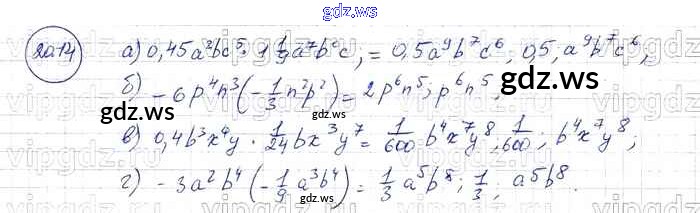 gdz.ws
20.14 а) 0,45a²bc⁵ · 1 1/9 a⁷b⁶c = 0,5a⁹b⁷c⁶; 0,5; a⁹b⁷c⁶;
б) -6p⁴n³(-1/3 n²p²) = 2p⁶n⁵; p⁶n⁵;
gdz.ws
gdz.ws
в) 0,4b³x⁴y · 1/24 bx³y⁷ = 1/600 b⁴x⁷y⁸; 1/600; b⁴x⁷y⁸;
г) -3a²b⁴(-1/9 a³b⁴) = 1/3 a⁵b⁸; 1/3; a⁵b⁸.
gdz.ws